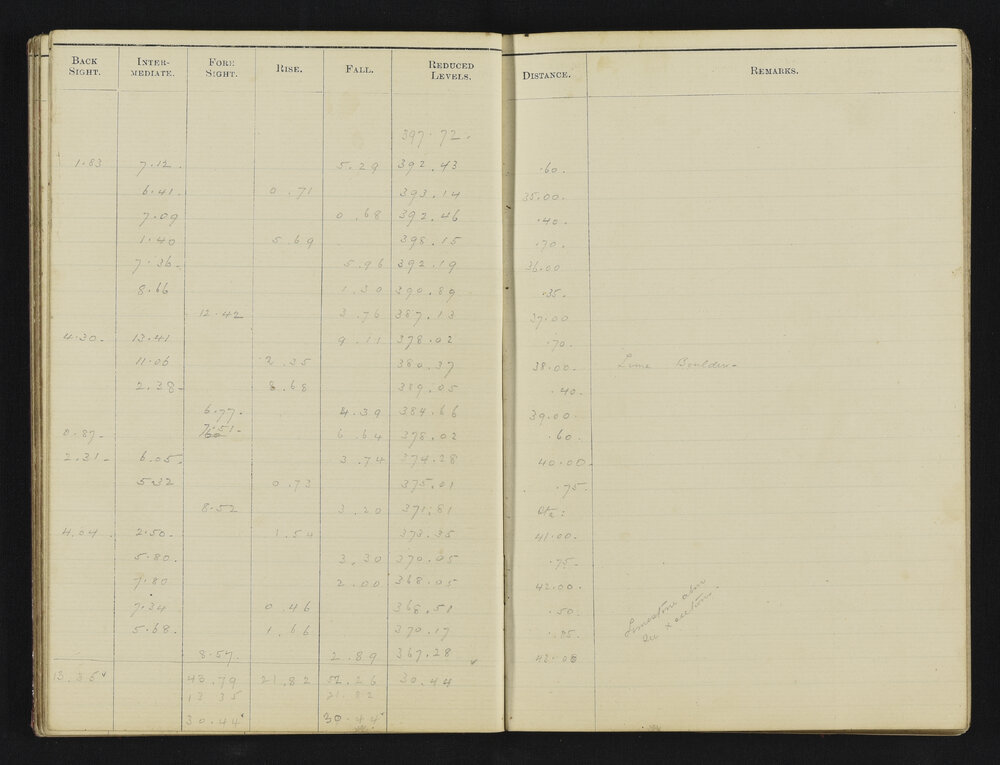 BACK SIGHT. INTER-MEDIATE. FORE SIGHT. RISE. FALL. REDUCED LEVELS. DISTANCE. REMARKS.
397.72.
1.83 7.12 5.29 392.43 .60.
6.41. 0.71 393.14 35.00.
7.09 0.68 392.46 .40.
1.40 5.69 398.15 .70.
7.36. 5.96 392.19 36.00
8.66 1.30 390.89 .35.
12.42 3.76 387.13 37.00
4.30. 13.41 9.11 378.02 .70.
11.06 2.35 380.37 38.00. Lime Boulder
2.38 8.68 389.05 .40.
6.77. 4.39 384.66 39.00.
0.87. 7.51. 6.64 378.02 .60.
2.31 6.05. 3.74 374.28 40.00.
5.32 0.73 375.01 .75.
8.52 3.20 371.81
4.04 2.50. 1.54 373.35 41.00.
5.80. 3.30 370.05 .75.
7.80 2.00 368.05 42.00.
7.34 0.46 368.51 .50. Limestone
5.68. 1.66 370.17 .85.
8.57. 2.89 367.28 43.00
13.35 43.79 21.82 52.26 30.44
13 35 21.82
30.44 30.44